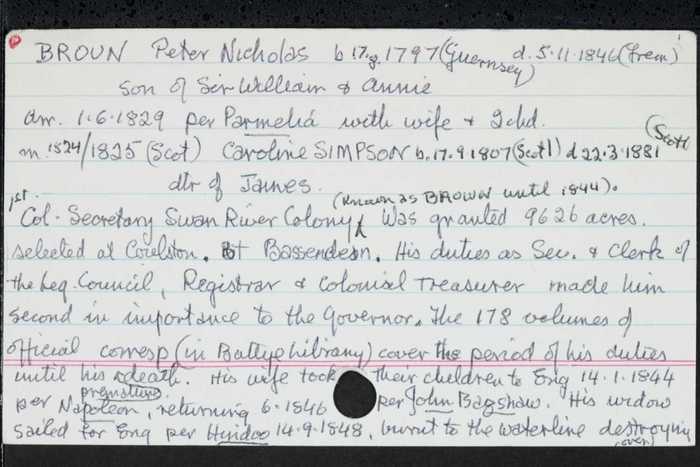 BROUN Peter Nicholas b 17.8.1797 (Guernsey) d. 5.11.1846 (Frem)
Son of Sir William & Annie
arr. 1.6.1829 per Parmelia with wife & 2 chd.
m. 1824/1825 (Scot) Caroline SIMPSON b. 17.9.1807 (Scotl) d 22.3.1881 (Scotl)
dtr of James.
(known as BROWN until 1844).
1st. Col. Secretary Swan River Colony. Was granted 9626 acres.
selected at Coulston, Bassendean. His duties as Sec. & Clerk of
the Leg. Council, Registrar & Colonial Treasurer made him
second in importance to the Governor. The 178 volumes of
official corresp (in Battye Library) cover the period of his duties
until his premature death. His wife took their children to Eng 14.1.1844
per Napoleon, returning 6.1846 per John Bagshaw. His widow
sailed for Eng per Hindoo 14.9.1848, burnt to the waterline destroying
(over)